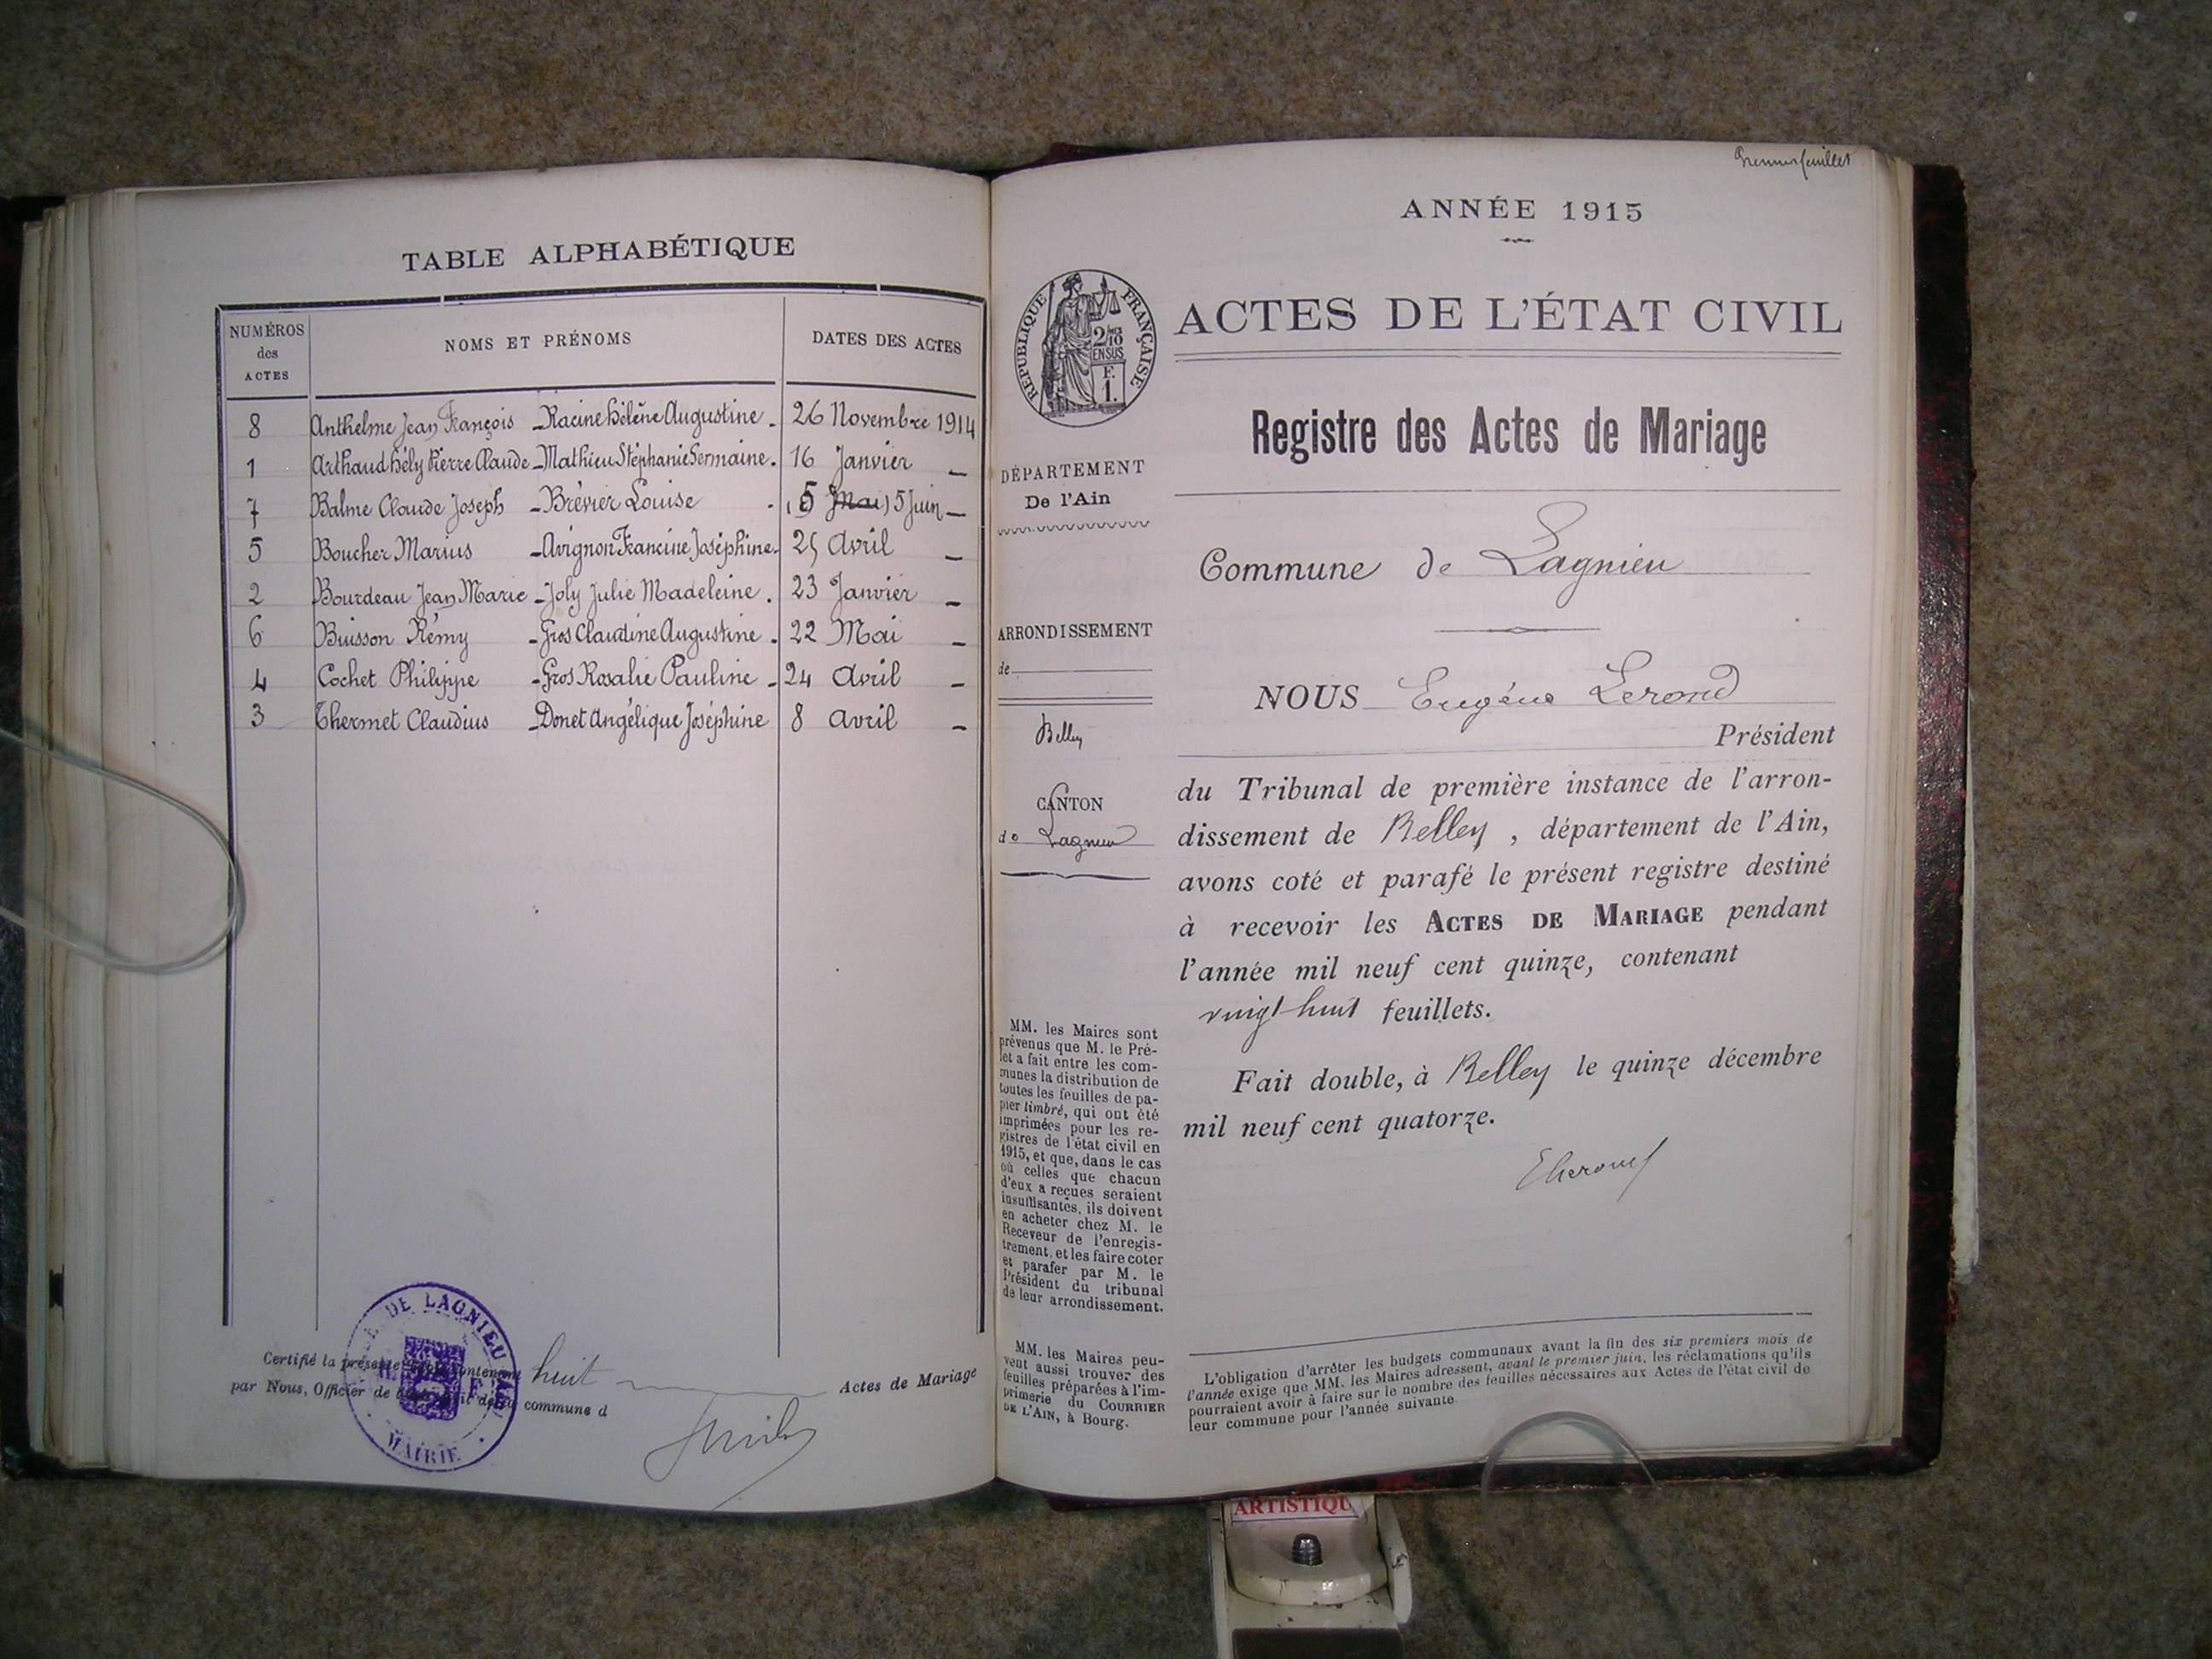 TABLE ALPHABÉTIQUE
NUMÉROS des ACTES NOMS ET PRÉNOMS DATES DES ACTES
8 Anthelme Jean François - Racine Hélène Augustine. 26 Novembre 1914
1 Arthaud Hély Pierre Claude - Mathieu Stéphanie Germaine. 16 Janvier —
7 Balme Claude Joseph - Brévier Louise . 5 Mai 5 Juin —
5 Boucher Marius - Avignon Francine Joséphine. 25 Avril —
2 Bourdeau Jean Marie - Joly Julie Madeleine. 23 Janvier —
6 Buisson Rémy - Gros Claudine Augustine. 22 Mai —
4 Cochet Philippe - Gros Rosalie Pauline - 24 Avril —
3 Thermet Claudius - Donet Angélique Joséphine 8 avril —
Certifié la présente contenant huit Actes de Mariage
par Nous, Officier de commune d
DE LAGNIEU
MAIRIE
Premier feuillet
ANNÉE 1915
RÉPUBLIQUE FRANÇAISE
2/10
EN SUS
F.
1.
ACTES DE L'ÉTAT CIVIL
Registre des Actes de Mariage
DÉPARTEMENT
De l'Ain
Commune de Lagnieu
ARRONDISSEMENT
de
Belley
CANTON
de Lagnieu
NOUS Eugène Lerond
Président
du Tribunal de première instance de l'arron-
dissement de Belley, département de l'Ain,
avons coté et parafé le présent registre destiné
à recevoir les ACTES DE MARIAGE pendant
l'année mil neuf cent quinze, contenant
vingt huit feuillets.
Fait double, à Belley le quinze décembre
mil neuf cent quatorze.
MM. les Maires sont
prévenus que M. le Pré-
fet a fait entre les com-
munes la distribution de
toutes les feuilles de pa-
pier timbré, qui ont été
imprimées pour les re-
gistres de l'état civil en
1915, et que, dans le cas
où celles que chacun
d'eux a reçues seraient
insuffisantes, ils doivent
en acheter chez M. le
Receveur de l'enregis-
trement, et les faire coter
et parafer par M. le
Président du tribunal
de leur arrondissement.
MM. les Maires peu-
vent aussi trouver des
feuilles préparées à l'im-
primerie du COURRIER
DE L'AIN, à Bourg.
L'obligation d'arrêter les budgets communaux avant la fin des six premiers mois de
l'année exige que MM. les Maires adressent, avant le premier juin, les réclamations qu'ils
pourraient avoir à faire sur le nombre des feuilles nécessaires aux Actes de l'état civil de
leur commune pour l'année suivante.
ARTISTIQU